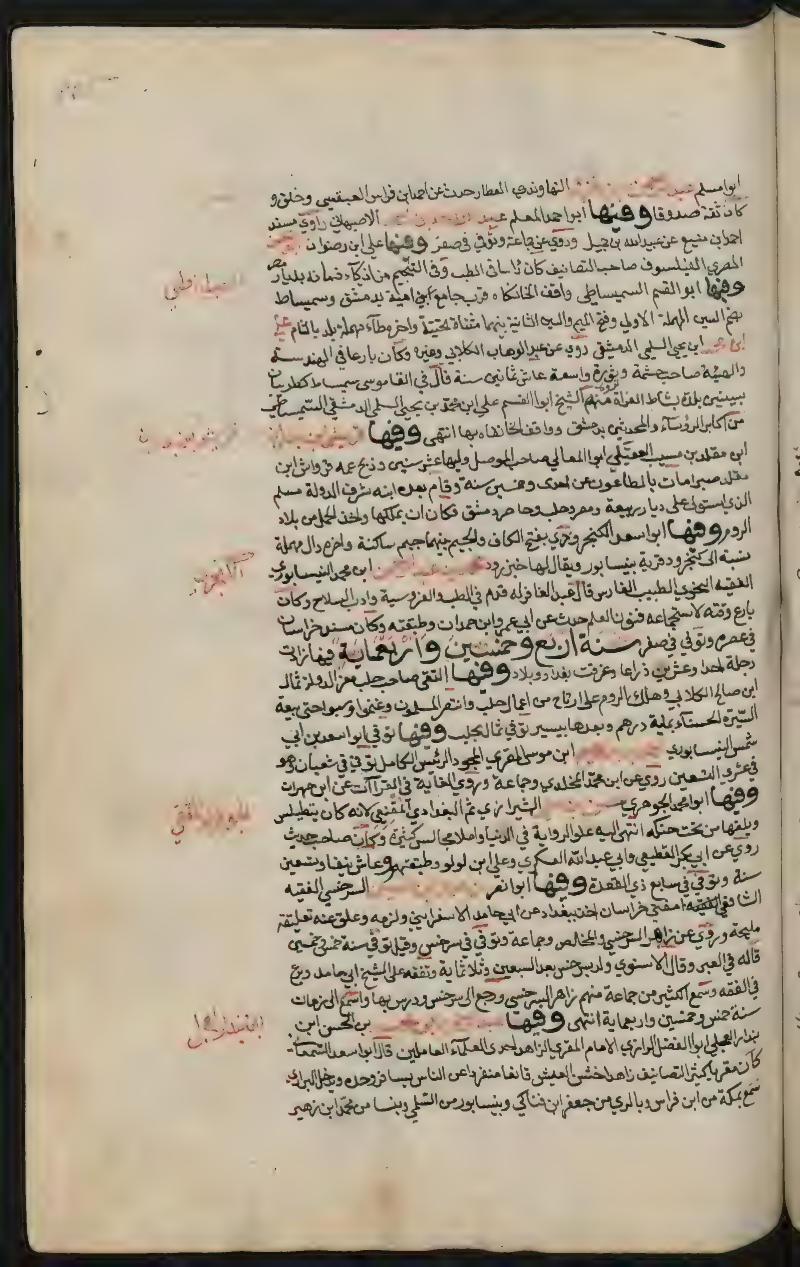 ابوا مسلم عبد النهاوندي العطار حدث عن احمد ابن فراس العبقسي وخلق و
كان ثقة صدوقا وفيها ابوا احمد المعلم عبد الاصبهاني راوي مسند
احمد ابن منيع عن عبيد الله بن جميل وروي عن جماعة وتوفي في صفر وفيها علي ابن رضوان
المصري الفيلسوف صاحب التصانيف كان رأسا في الطب وفي التنجيم من اذكياء زمانه بديار مصر
وفيها ابو القسم السميساطي واقف الخانكاه قرب جامع ابني امية بدمشق وسميساط
بضم السين المهملة الاولي وفتح الميم والسين الثانية بينهما مثناة تحتية واخره طاء مهملة بلد بالشام علي
ابن محمد ابن يحيى السلمي الدمشقي روي عن عبد الوهاب الكلابي وغيره وكان بارعا في الهندسة
والهيئة صاحب حشمة وثروة واسعة عاش ثمانين سنة قال في القاموس سميساط كطربال
بسينين بلدة بشاط الفراة منهم الشيخ ابوا القسم علي ابن محمد بن يحيى السلمي الدمشقي السميساطي
من اكابر الرؤساء والمحدثين بدمشق وواقف الخانقاه بها انتهى وفيها قريش ابن بدران
ابن مقلد بن مسيب العقيلي ابوا المعالي صاحب الموصل وليها عشر سنين وذبح عمه قرواش ابن
مقلد صبرا مات بالطاعون عن احدى وخمسين سنة وقام بعده ابنه شرف الدولة مسلم
الذي استولى على ديار ربيعة ومصر وحلب وحاصر دمشق فكان ان يملكها واخذ الحمل من بلاد
الروم وفيها ابوا سعد الكنجروذي بفتح الكاف والجيم بينهما جيم ساكنة واخره دال مهملة
نسبة الى كنجروذ قرية بنيسابور ويقال لها خبزرود محمد بن عبد الرحمن ابن محمد النيسابوري
الفقيه النحوي الطبيب الفارس قال عبد الغافر له قدم في الطب والفروسية وادب السلاح وكان
بارع وقته لاستجماعه فنون العلم حدث عن ابي عمرو ابن حمدان وطبقته وكان مسند خراسان
في عصره وتوفي في صفر سنة اربع وخمسين واربعماية فيها زادت
دجلة احدا وعشرين ذراعا وغرقت بغداد وبلاد وفيها التقى صاحب حلب معز الدولة ثمال
ابن صالح الكلابي وملك الروم على ارتاح من اعمال حلب وانتصر المسلمون وغنموا وسبوا حتى بيعة
السرية الحسناء بماية درهم وبعدها بيسير توفي ثمال بحلب وفيها توفي ابوا سعد بن ابي
شمس النيسابوري ابن موسى المقري المجود الرئيس الكامل توفي في شعبان وهو
في عشر التسعين روي عن ابن محمد المخلدي وجماعة وروي الغاية في القراآت عن ابن مهران
وفيها ابوا محمد الجوهري الشيرازي ثم البغدادي المقنعي لانه كان يتطيلس
ويلفها من تحت حنكه انتهى اليه علوا الرواية في الدنيا واملا مجالس كثيرة وكان صاحب حديث
روي عن ابي بكر القطيعي وابي عبد الله العسكري وعلي ابن لولو وطبقتهم وعاش نيفا وتسعين
سنة وتوفي في سابع ذي القعدة وفيها ابوا نصر السرخسي الفقيه
الشافعي الفقيه مفتي خراسان اخذ ببغداد عن ابي حامد الاسفرايني ولزمه وعلق عنه تعليقة
مليحة وروي عن زاهر السرخسي والمخالص وجماعة وتوفي في سرخس وقيل توفي سنة خمس وخمسين
قاله في العبر وقال الاسنوي ولد بسرخس بعد السبعين وثلاثماية وتفقه على الشيخ ابي حامد وبرع
في الفقه وسمع الكثير من جماعة منهم زاهر السرخسي ورجع الى سرخس ودرس بها واسمع الى ان مات
سنة خمس وخمسين واربعماية انتهى وفيها بن الحسن ابن
بندار العجلي ابوا الفضل الرازي الامام المقري الزاهد احد العلماء العاملين قال ابوا سعد السمعاني
كان مقريا كثير التصانيف زاهدا خشن العيش قانعا منفردا عن الناس يسافر وحده ويدخل البراري
سمع بمكة من ابن فراس وبالري من جعفر ابن فناكي وبنيسابور من السلمي وبنسا من محمد ابن زهير